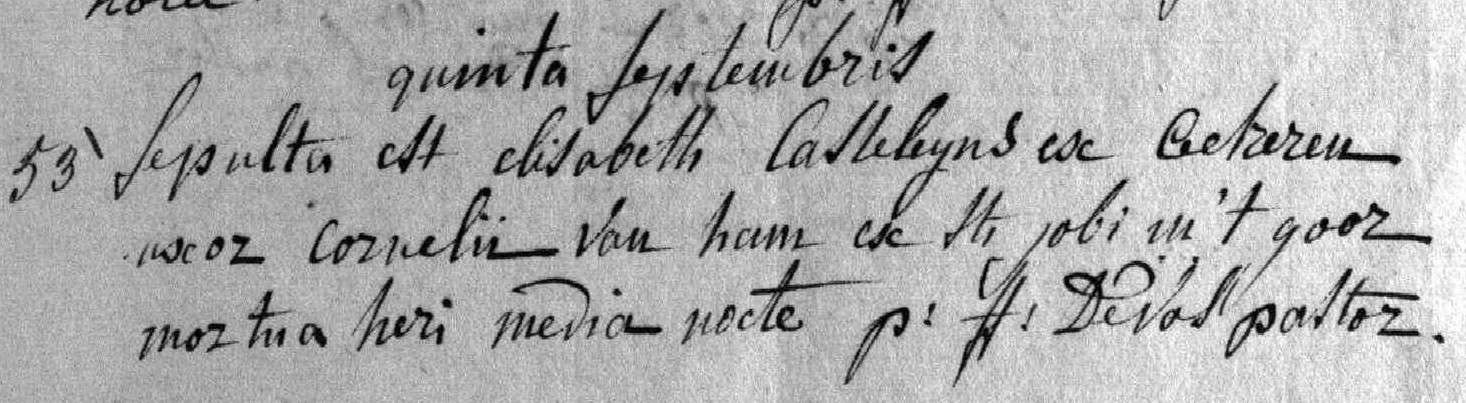 quinta septembris
53 sepulta est elisabeth Casteleyns ex Eekeren
uxor cornelii van ham ex sti jobi in't goor
mortua heri media nocte p: f: De Vos pastor.